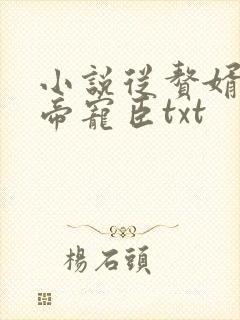 小說從贅婿
帝寵臣txt
楊石頭